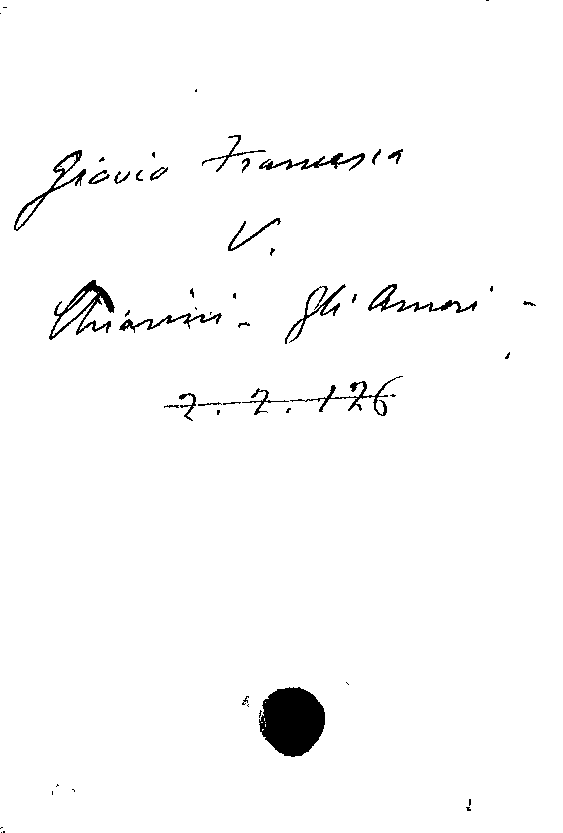 Giovio Francesca
V.
Chiarini - Gli Amori -
2. 2. 126